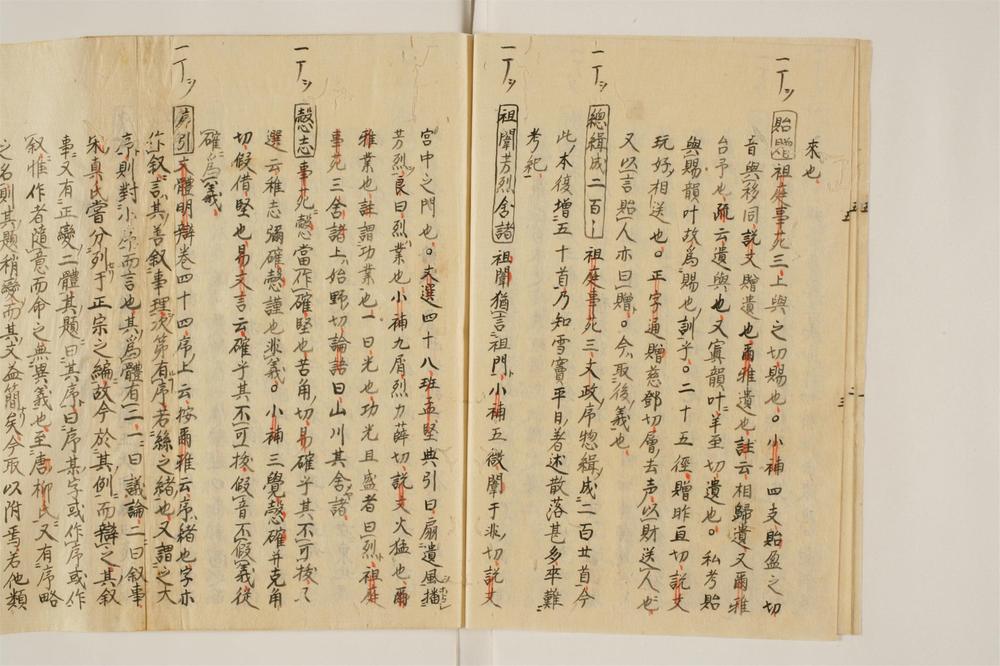 來也
一丁ツ
貽贈祖庭事苑三上與之切賜也。小補四支貽盈之切
音與移同說文贈遺也爾雅遺也註云相歸遺又爾雅
台予也疏云遺與也又寘韻叶羊至切遺也。私考貽
與賜韻叶故爲賜也訓乎。二十五徑贈昨亘切說文
玩好相送也。正字通贈慈鄧切層去声以財送人也
又以言貽人亦曰贈。今取後義也
一丁ツ
總緝成二百 祖庭事苑三文政序惣緝成二百廿首今
此本復增五十首乃知雪竇平日著述散落甚多卒難
考紀
一丁ツ
祖闈芳烈舍諸 祖闈猶言祖門小補五微闈于非切說文
宮中之門也。文選四十八班孟堅典引曰扇遺風播
芳烈良曰烈業也小補九屑烈力薛切說文火猛也爾
雅業也註謂功業也一曰光也功光且盛者曰烈祖庭
事苑三舍諸上始野切論語曰山川其舍諸
一丁ツ
慤志事苑慤當作確堅也苦角切易確乎其不可拔
選云稚志彌確慤謹也非義。小補三覺慤確并克角
切假借堅也易文言云確乎其不可拔假音不假義從
確爲義
一丁ツ
序引文體明辯卷四十四序上云按爾雅云序緒也字亦
作敘言其善敘事理次第有序若絲之緒也又謂之大
序則對小序而言也其爲體有二一曰議論二曰敘事
宋真氏嘗分列于正宗之編故今於其例而辯之其敘
事又有正變二體其題曰某序曰序某字或作序或作
敘惟作者隨意而命之無異義也至唐柳氏又有序略
之名則其題稍變而其文益簡矣今取以附焉若他類